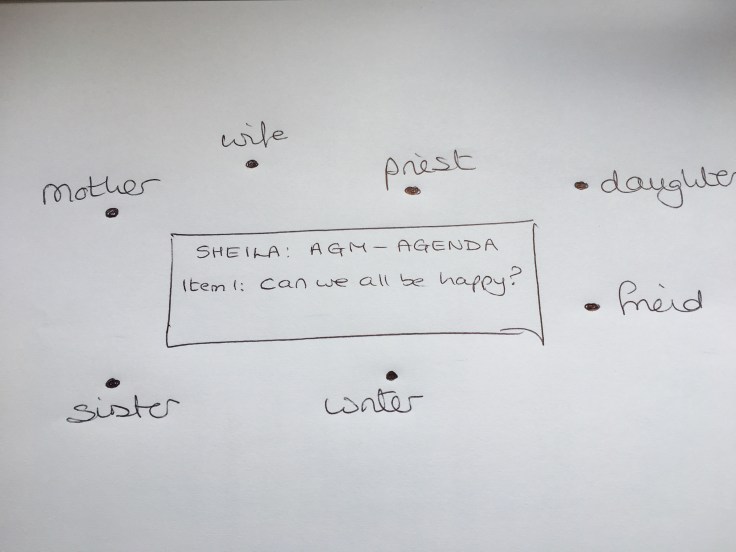 wife
mother
priest
daughter
SHEILA: AGM - AGENDA
Item 1: Can we all be happy?
friend
sister
writer